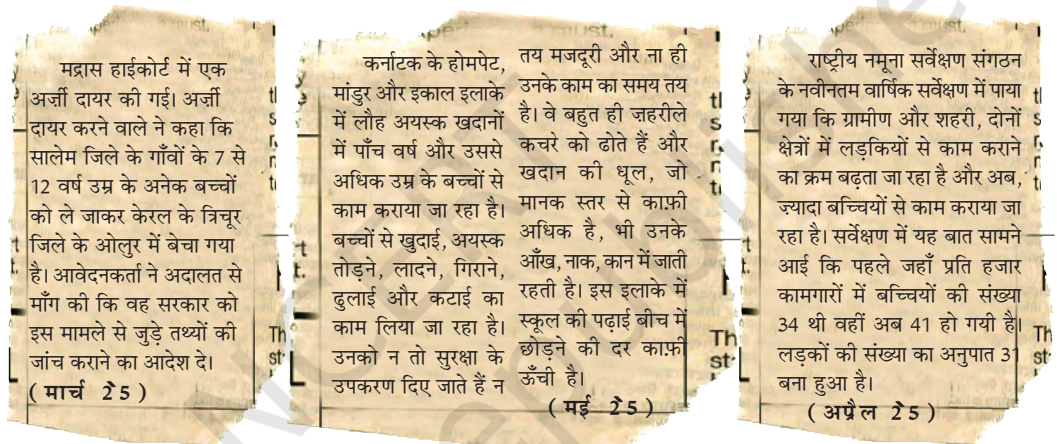 मद्रास हाईकोर्ट में एक
अर्ज़ी दायर की गई। अर्ज़ी
दायर करने वाले ने कहा कि
सालेम जिले के गाँवों के 7 से
12 वर्ष उम्र के अनेक बच्चों
को ले जाकर केरल के त्रिचूर
जिले के ओलुर में बेचा गया
है। आवेदनकर्ता ने अदालत से
माँग की कि वह सरकार को
इस मामले से जुड़े तथ्यों की
जांच कराने का आदेश दे।
( मार्च 2े5 )
कर्नाटक के होमपेट,
मांडुर और इकाल इलाके
में लौह अयस्क खदानों
में पाँच वर्ष और उससे
अधिक उम्र के बच्चों से
काम कराया जा रहा है।
बच्चों से खुदाई, अयस्क
तोड़ने, लादने, गिराने,
ढुलाई और कटाई का
काम लिया जा रहा है।
उनको न तो सुरक्षा के
उपकरण दिए जाते हैं न
तय मजदूरी और ना ही
उनके काम का समय तय
है। वे बहुत ही ज़हरीले
कचरे को ढोते हैं और
खदान की धूल, जो
मानक स्तर से काफ़ी
अधिक है, भी उनके
आँख, नाक, कान में जाती
रहती है। इस इलाके में
स्कूल की पढ़ाई बीच में
छोड़ने की दर काफ़ी
ऊँची है।
( मई 2े5 )
राष्ट्रीय नमूना सर्वेक्षण संगठन
के नवीनतम वार्षिक सर्वेक्षण में पाया
गया कि ग्रामीण और शहरी, दोनों
क्षेत्रों में लड़कियों से काम कराने
का क्रम बढ़ता जा रहा है और अब,
ज्यादा बच्चियों से काम कराया जा
रहा है। सर्वेक्षण में यह बात सामने
आई कि पहले जहाँ प्रति हजार
कामगारों में बच्चियों की संख्या
34 थी वहीं अब 41 हो गयी है।
लड़कों की संख्या का अनुपात 31
बना हुआ है।
( अप्रैल 2े5 )